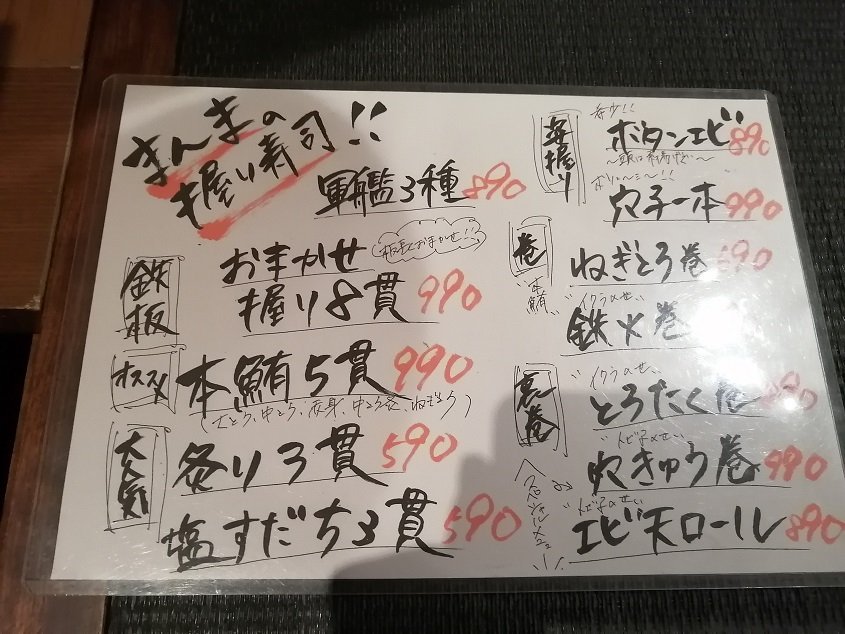 まんまの
握り寿司!!
軍艦3種 890
鉄板
おまかせ
板長おまかせ!!
握り8貫 990
オススメ
本鮪5貫 990
(大とろ、中とろ、赤身、中とろ炙、ねぎとろ)
大人気
炙り3貫 590
塩すだち3貫 590
希少!!
握り
ボタンエビ 890
穴子一本 990
巻
本鮪
ねぎとろ巻 90
イクラのせ
鉄火巻
裏巻
イクラのせ
とろたく巻 90
トビ子のせ
穴きゅう巻 990
トビ子のせ
エビ天ロール 890